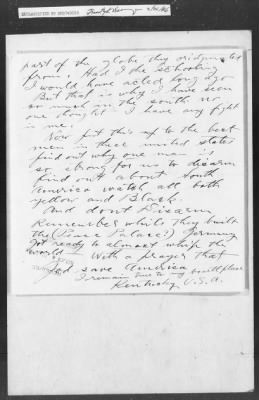 DECLASSIFIED BY
part of the globe they originated
from. Had I the schooling
I would have acted long ago
But that is why I have been
so much in the south no
one thought I have any fight
in me.
Now put this up to the best
men in these united states
find out why one man is
so strong for us to disarm
find out about South
America watch all both
yellow and Black.
And don't Disarm
Remember while they built
the (Peace Palace?) Germany
got ready to almost whip the
world With a prayer that
God save America
I remain true to my birth place
Kentucky U.S.A.